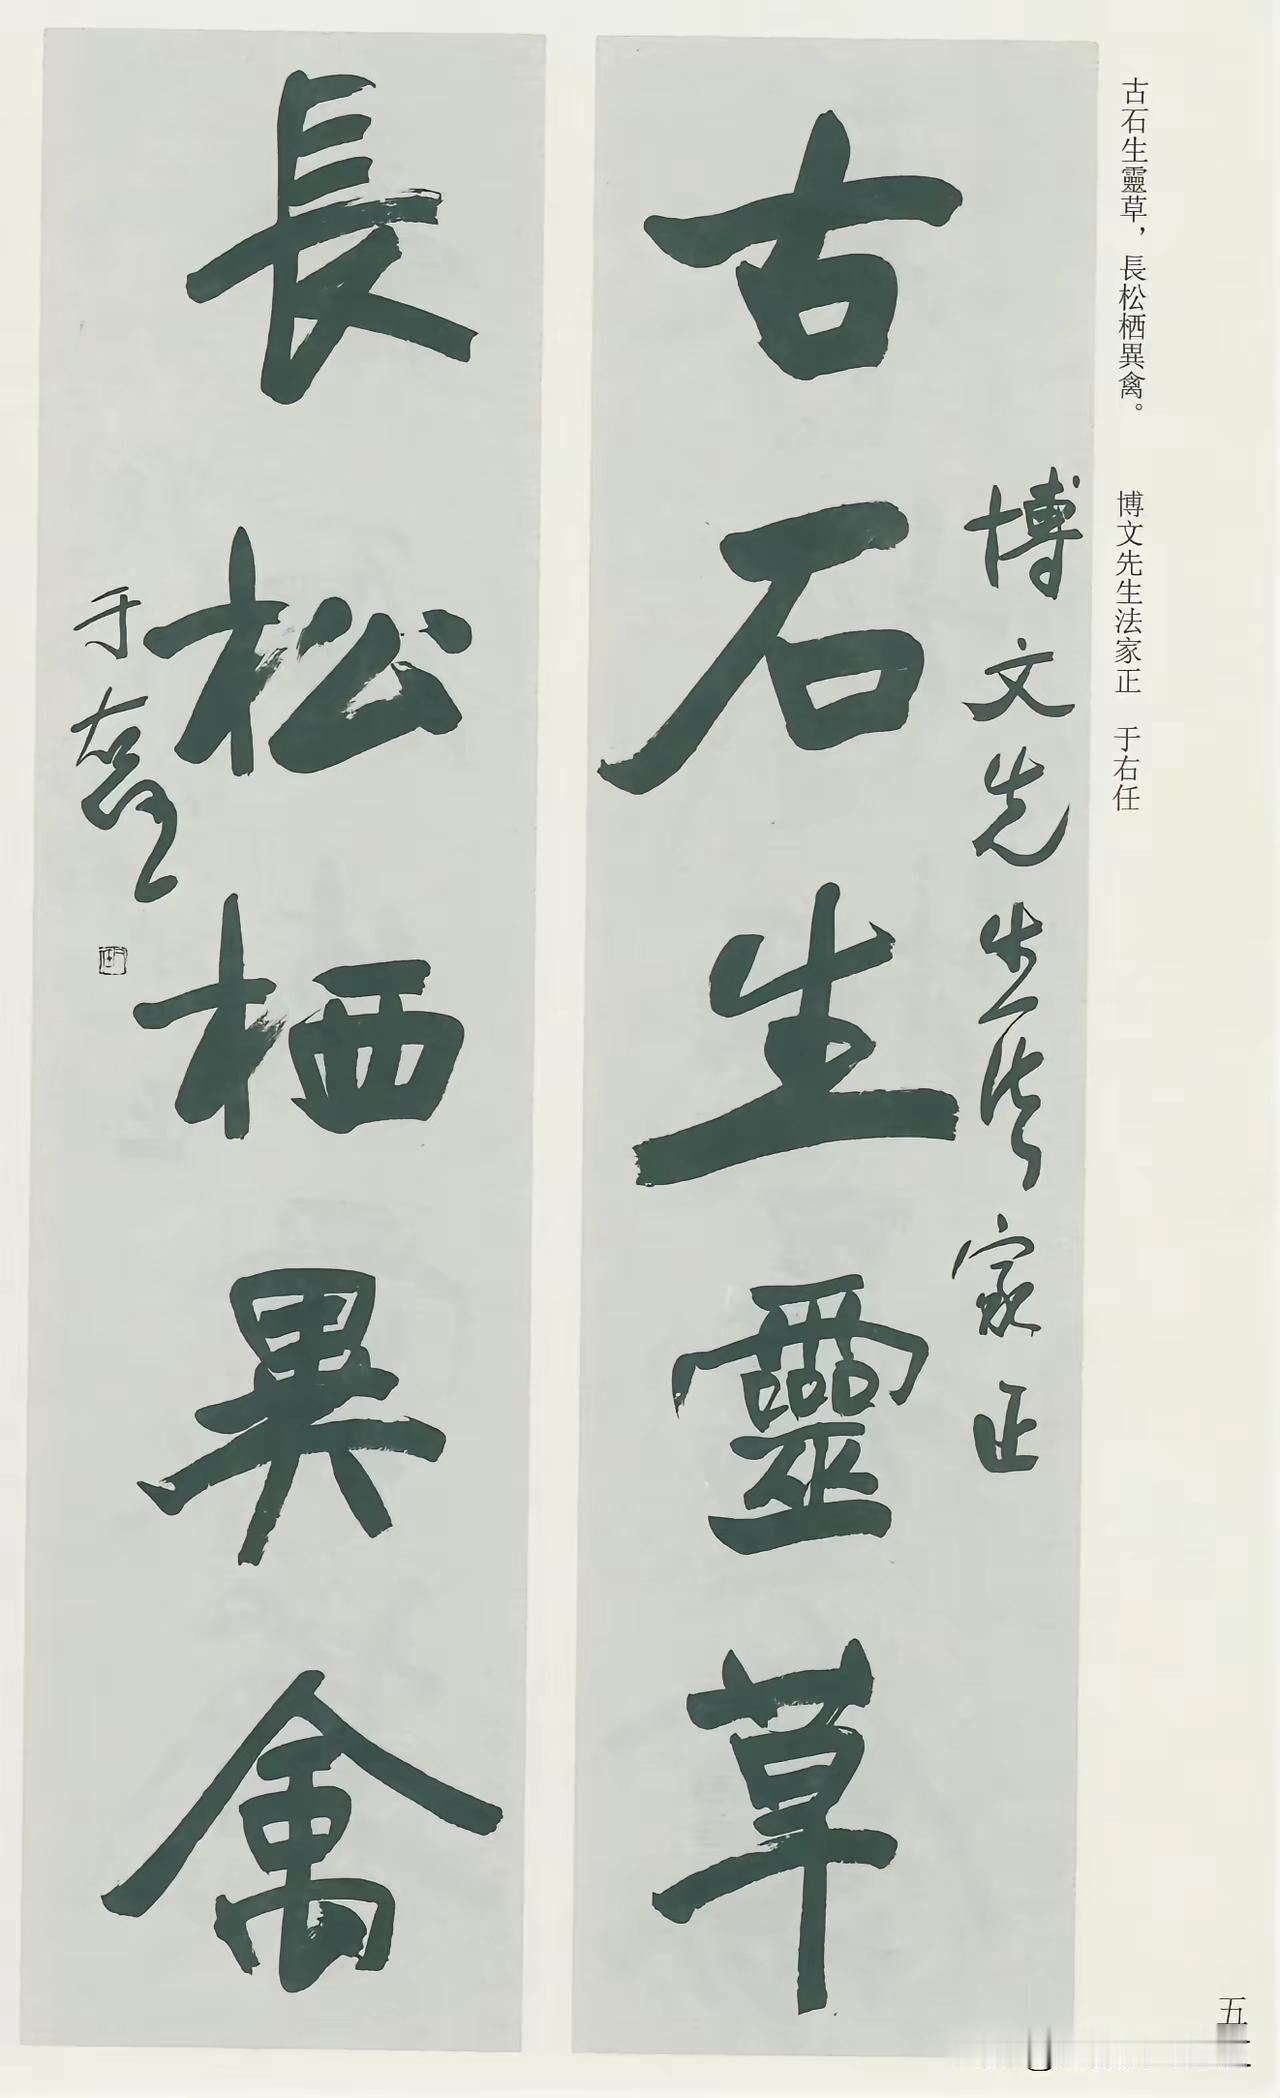 古石生靈草，長松栖異禽。 博文先生法家正 于右任
博文先生法家正
古石生靈草
長松栖異禽
于右任
五